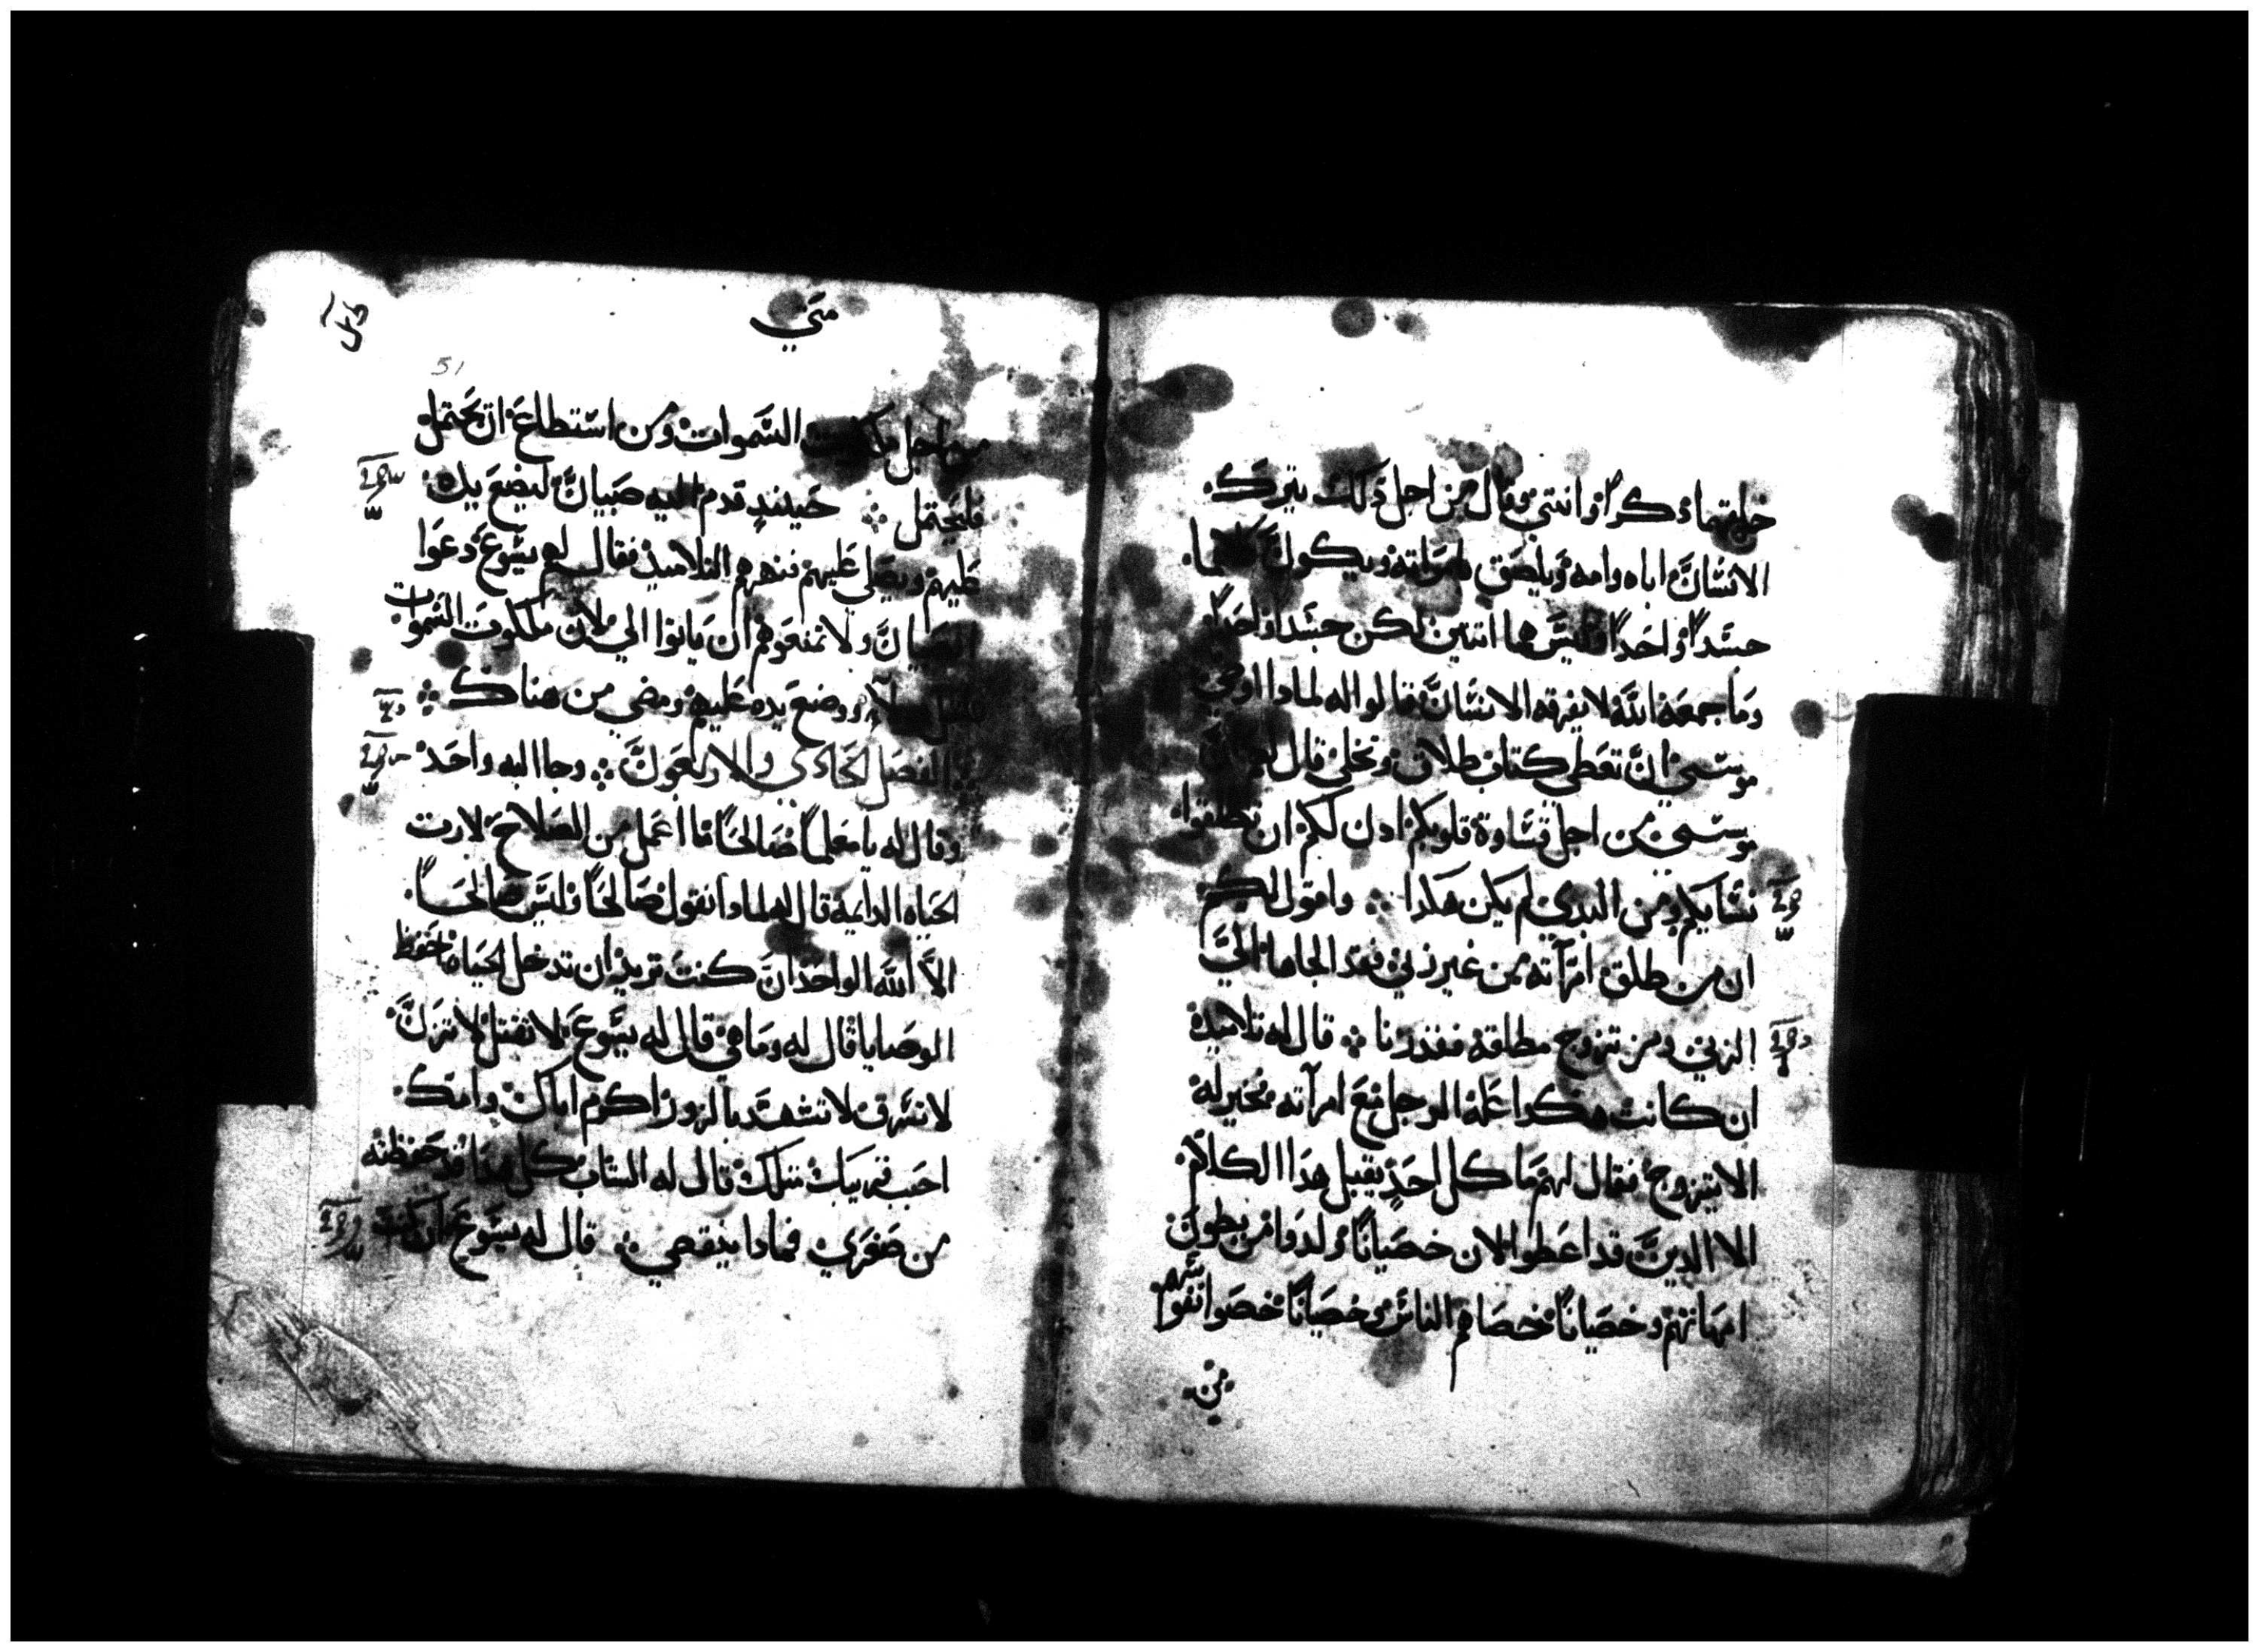 خلقهما ذكرا وانتي وقال من اجل ذلك يترك
الانسان اباه وامه ويلصق بامراته ويكون كلاهما
جسدا واحدا وليس هما اتنين لكن جسدا واحدا
وما جمعه الله لا يفرقه الانسان قالوا له لمادا اوصي
موسي ان تعطي كتاب طلاق وتخلي قال لهم ان
موسي من اجل قساوة قلوبكم ادن لكم ان تطلقوا
نسايكم ومن البدي لم يكن هكدا واقول لكم
ان من طلق امرآته من غير زني فقد الجاها الي
الزني ومن تزوج مطلقه فقد زنا قال له تلاميده
ان كانت هكدا علة الرجل مع امرآته فخير له
الا يتزوج فقال لهم ما كل احد يقبل هدا الكلام
الا الدين قد اعطوا لان خصيانا ولدوا من بطون
امهاتهم وخصيانا خصاهم الناس وخصيانا خصوا نفوسهم
من
متي
51
من اجل ملكوت السموات ومن استطاع ان يحتمل
فليحتمل حينيد قدم اليه صبيان ليضع يده
عليهم ويصلي عليهم فنهرهم التلاميذ فقال لهم يسوع دعوا
الصبيان ولا تمنعوهم ان ياتوا الي لان ملكوت السموات
ووضع يده عليهم ومضي من هناك
الفصل الحادي والاربعون وجا اليه واحد
وقال له يا معلما صالحا ما اعمل من الصلاح لارت
الحياه الدايمة قال له لمادا تقول صالحا وليس صالحا
الا الله الواحد ان كنت تريد ان تدخل الحياه احفظ
الوصايا قال له وما هي قال له يسوع لا تقتل لا تزن
لا تسرق لا تشهد بالزور اكرم اباك وامك
احب قريبك متلك قال له الشاب كل هدا قد حفظته
من صغري فمادا ينقصني قال له يسوع ان كنت